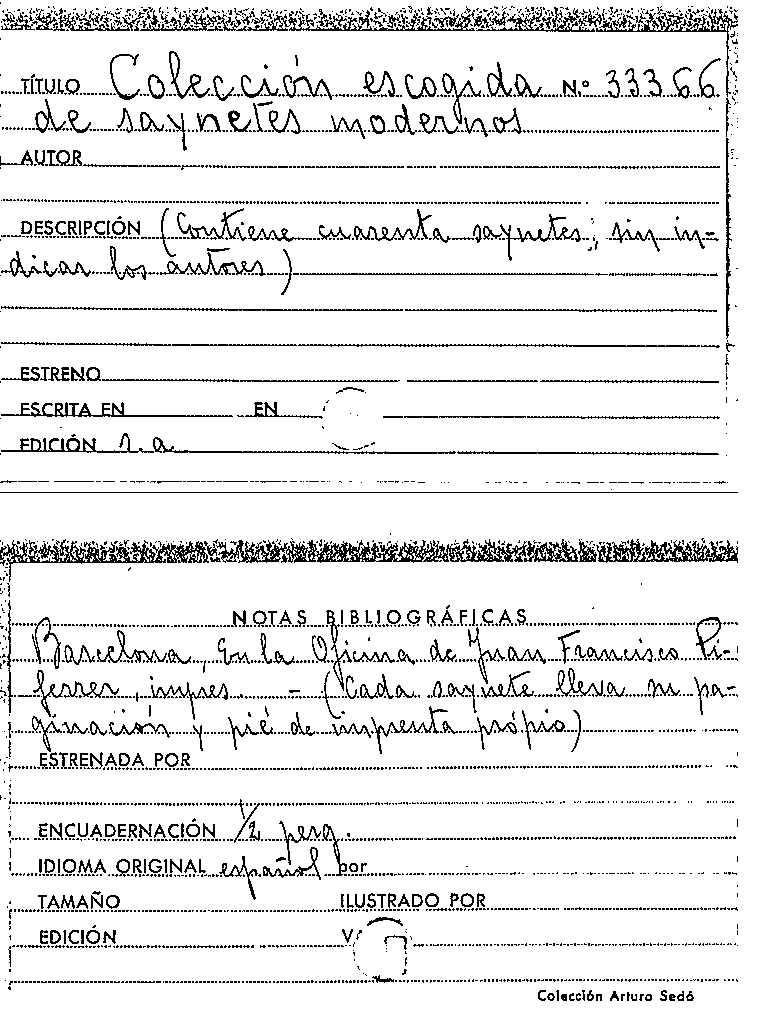 TÍTULO Colección escogida N.º 33366
de saynetes modernos
AUTOR
DESCRIPCIÓN (Contiene cuarenta saynetes, sin in-
dicar los autores)
ESTRENO
ESCRITA EN EN
EDICIÓN s. a.
NOTAS BIBLIOGRÁFICAS
Barcelona, En la Oficina de Juan Francisco Pi-
ferrer, impres. - (Cada saynete lleva su pa-
ginación y pié de imprenta própio)
ESTRENADA POR
ENCUADERNACIÓN 1/2 perg.
IDIOMA ORIGINAL español por
TAMAÑO ILUSTRADO POR
EDICIÓN
Colección Arturo Sedó